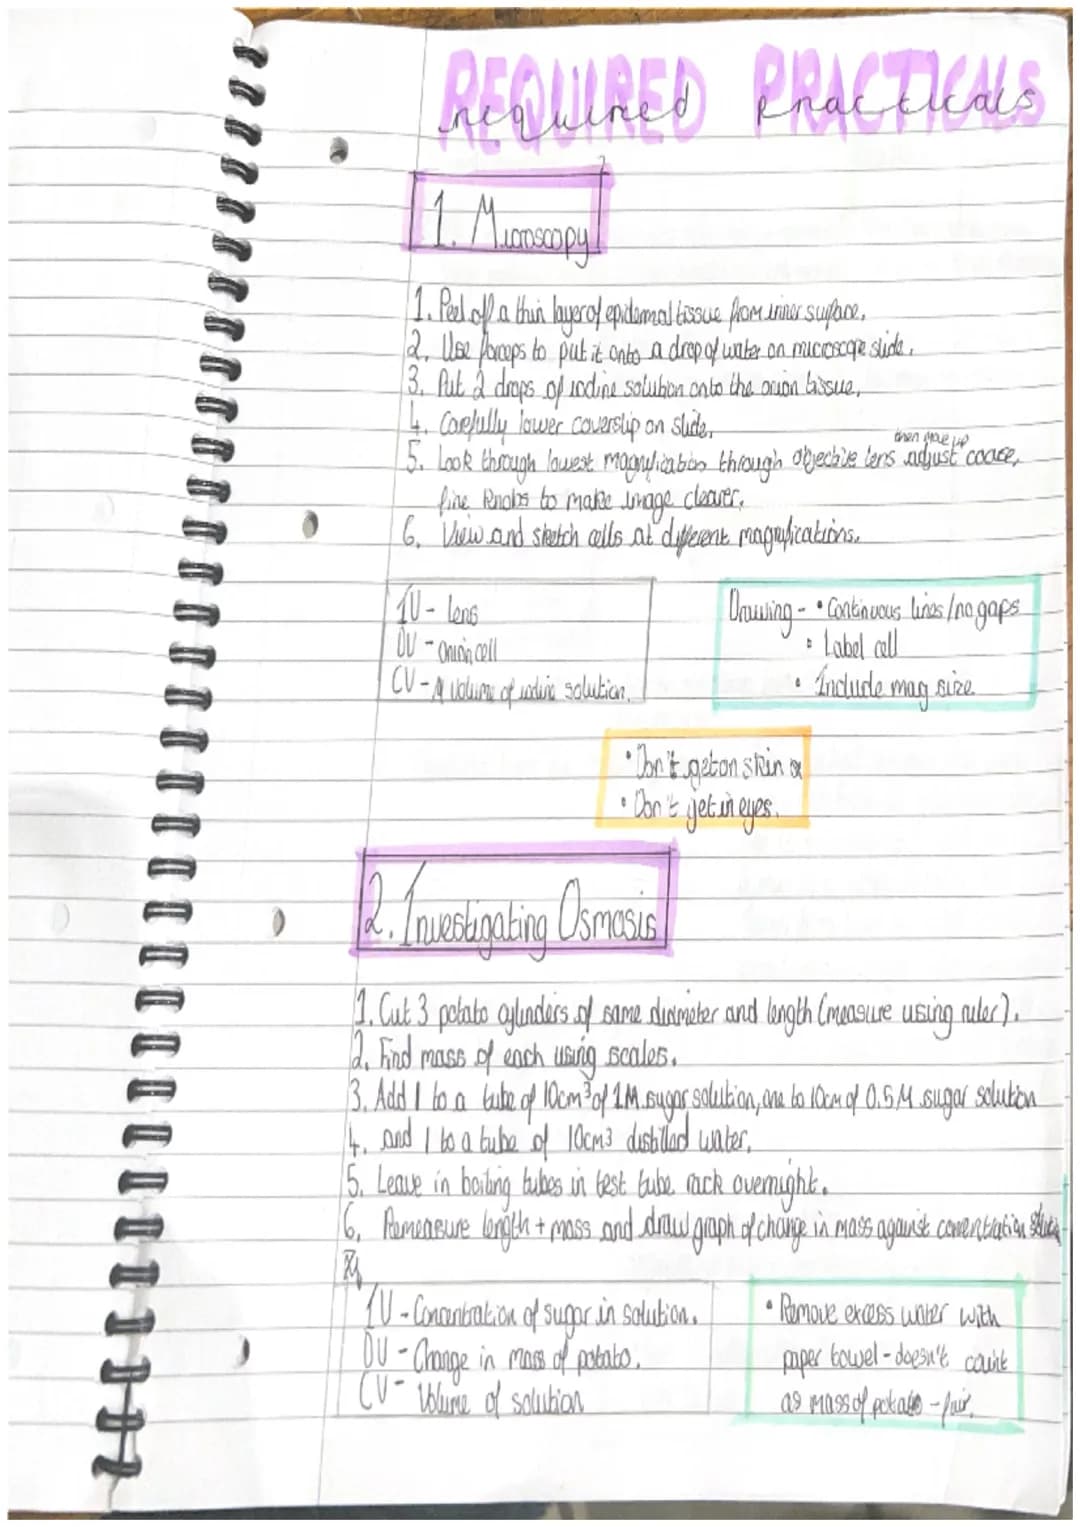 REQUIRED PRACTICALS
required practicals
1. Microscopy
1. Peel off a thin layer of epidermal tissue from inner surface.
2. Use forceps to put it onto a drop of water on microscope slide.
3. Put 2 drops of iodine solution onto the onion tissue.
4. Carefully lower coverslip on slide.
then move up
5. Look through lowest magnification through objective lens adjust coarse,
fine knobs to make image clearer.
6. View and sketch cells at different magnifications.
IV - lens
DV - onion cell
CV - volume of iodine solution.
Drawing - • Continuous lines/no gaps
• Label cell
• Include mag size
• Don't get on skin or
• Don't get in eyes.
2. Investigating Osmosis
1. Cut 3 potato cylinders of same diameter and length (measure using ruler).
2. Find mass of each using scales.
3. Add 1 to a tube of 10cm³ of 1M sugar solution, one to 10cm of 0.5M sugar solution
4. and 1 to a tube of 10cm3 distilled water.
5. Leave in boiling tubes in test tube rack overnight.
6. Remeasure length + mass and draw graph of change in mass against concentration
IV - Concentration of sugar in solution.
DV - Change in mass of potato.
CV - Volume of solution
• Remove excess water with
paper towel - doesn't count
as mass of potato - fair.